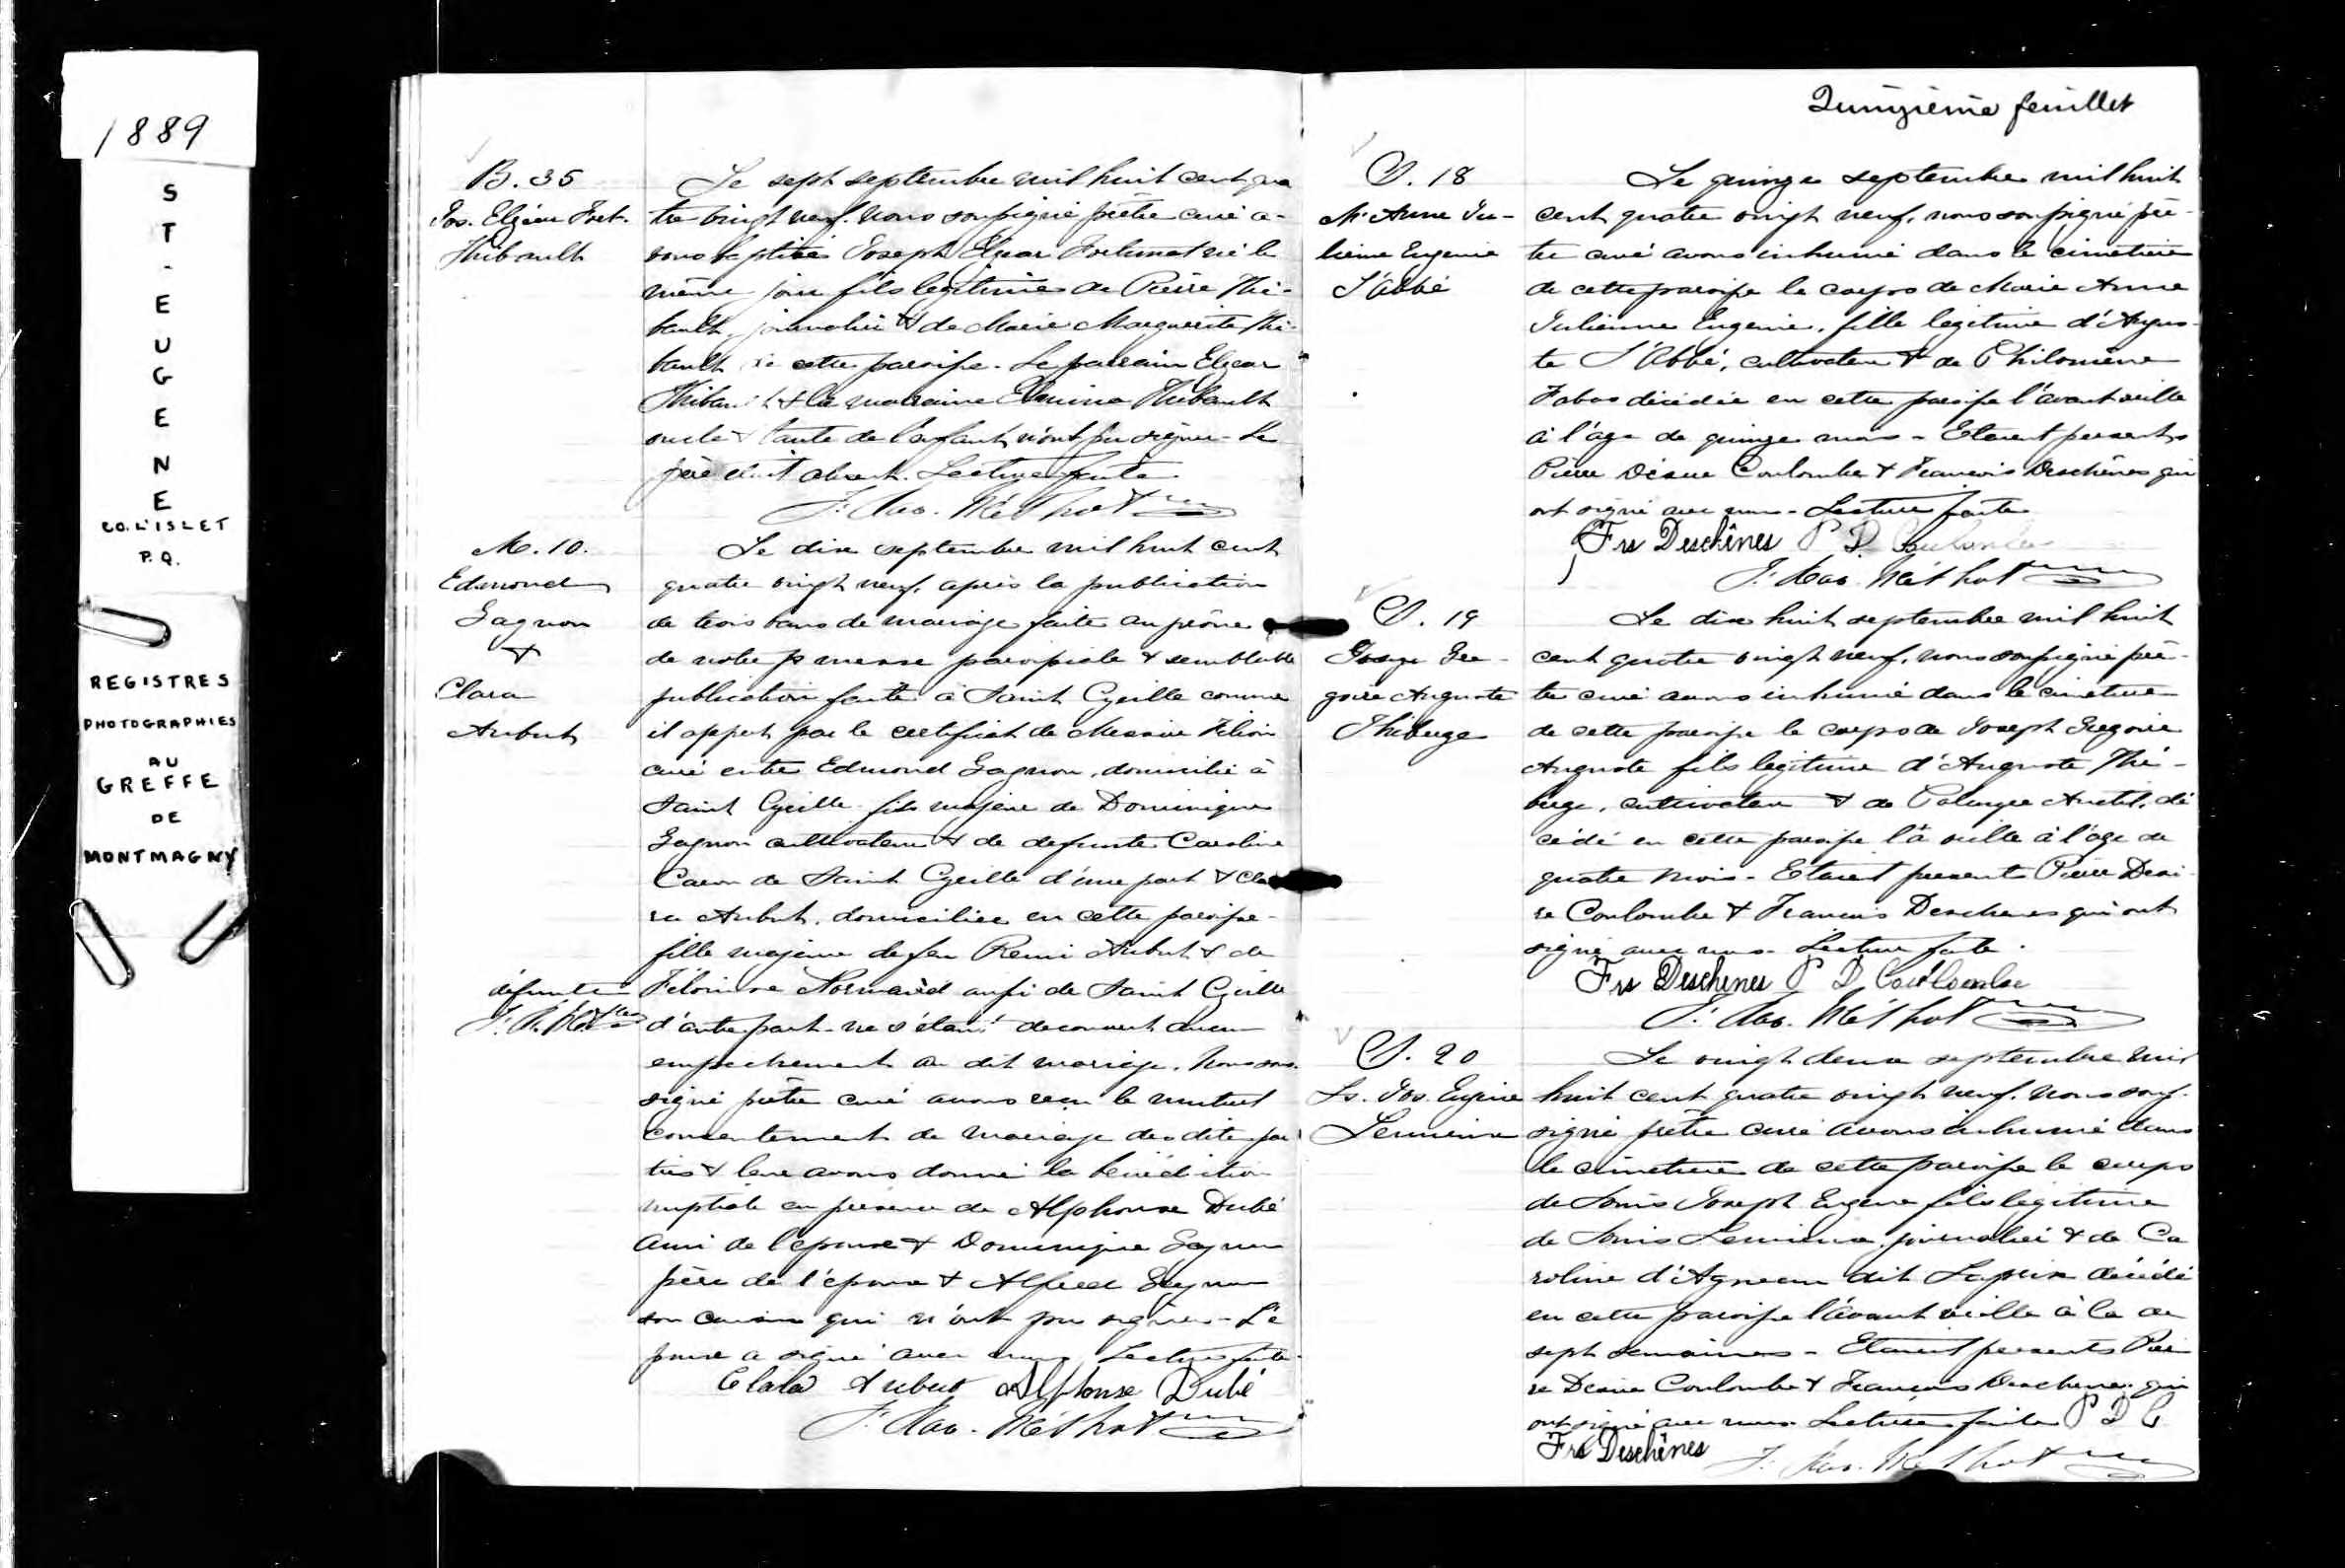 1889
ST-EUGENE
CO. L'ISLET
P.Q.
REGISTRES
PHOTOGRAPHIES
AU
GREFFE
DE
MONTMAGNY
B. 35
Jos. Elzéar Fort.
Thibault
Le sept septembre mil huit cent qua
tre vingt neuf. nous soussigné prêtre curé a-
vons baptisé Joseph Elzéar Fortunat né le
même jour fils légitime de Pierre Thi-
bault, journalier & de Marie Marguerite Thi-
bault de cette paroisse. Le parrain Elzear
Thibault & la marraine Thibault
oncle & tante de l'enfant n'ont pu signer. Le
père était absent. Lecture faite
F. Xav. Méthot
M. 10.
Edmond
Gagnon
&
Clara
Aubut
Le dix septembre mil huit cent
quatre vingt neuf, après la publication
de trois bans de mariage faite au prône
de notre messe paroissiale & semblable
publication faite à Saint Cyrille comme
il appert par le certificat de Messire Filion
curé entre Edmond Gagnon, domicilié à
Saint Cyrille fils majeur de Dominique
Gagnon cultivateur & de defunte Caroline
Caron de Saint Cyrille d'une part & Cla
ra Aubut, domiciliée en cette paroisse
fille majeure de feu Remi Aubut & de
défunte
Normand aussi de Saint Cyrille
d'autre part. ne s'étant decouvert aucun
empechement au dit mariage. Nous sous-
signé prêtre curé avons reçu le mutuel
consentement de mariage des dites par
ties & leur avons donné la bénédiction
nuptiale en présence de Alphonse Dubé
ami de l'epouse & Dominique Gagnon
père de l'époux & Alfred Gagnon
son cousin qui n'ont pu signer. L'é
pouse a signé avec nous Lecture faite
Clara Aubut Alphonse Dubé
F. Xav. Méthot
Quinzième feuillet
S. 18
M. Anne Ju-
lienne Eugenie
L'Abbé
Le quinze septembre mil huit
cent quatre vingt neuf, nous soussigné prê-
tre curé avons inhumé dans le cimetière
de cette paroisse le corps de Marie Anne
Julienne Eugenie, fille legitime d'Augus-
te L'Abbé, cultivateur & de Philomène
décédée en cette paroisse l'avant veille
à l'age de quinze mois - Etaient présents
Pierre Désiré Coulombe & François Deschênes qui
ont signé avec nous - Lecture faite
Frs Deschênes P D Coulombe
F. Xav. Méthot
S. 19
Joseph Gré-
goire Auguste
Théberge
Le dix huit septembre mil huit
cent quatre vingt neuf, nous soussigné prê-
tre curé avons inhumé dans le cimetière
de cette paroisse le corps de Joseph Gregoire
Auguste fils legitime d'Auguste Thé-
berge, cultivateur & de Anctil, dé
cédé en cette paroisse la veille à l'age de
quatre mois - Etaient présents Pierre Dési
ré Coulombe & François Deschenes qui ont
signé avec nous - Lecture faite.
Frs Deschenes P D Coulombe
F. Xav. Méthot
S. 20
Ls. Jos. Eugène
Lemieux
Le vingt deux septembre mil
huit cent quatre vingt neuf, nous sous-
signé prêtre curé avons inhumé dans
le cimetière de cette paroisse le corps
de Louis Joseph Eugène fils légitime
de Louis Lemieux journalier & de Ca
roline d'Agneau dit Lapierre décédé
en cette paroisse l'avant veille à l'a de
sept semaines - Etaient présents Pier
re Désiré Coulombe & François Deschenes qui
ont signé avec nous Lecture faite P D C
Frs Deschênes F. Xav. Méthot